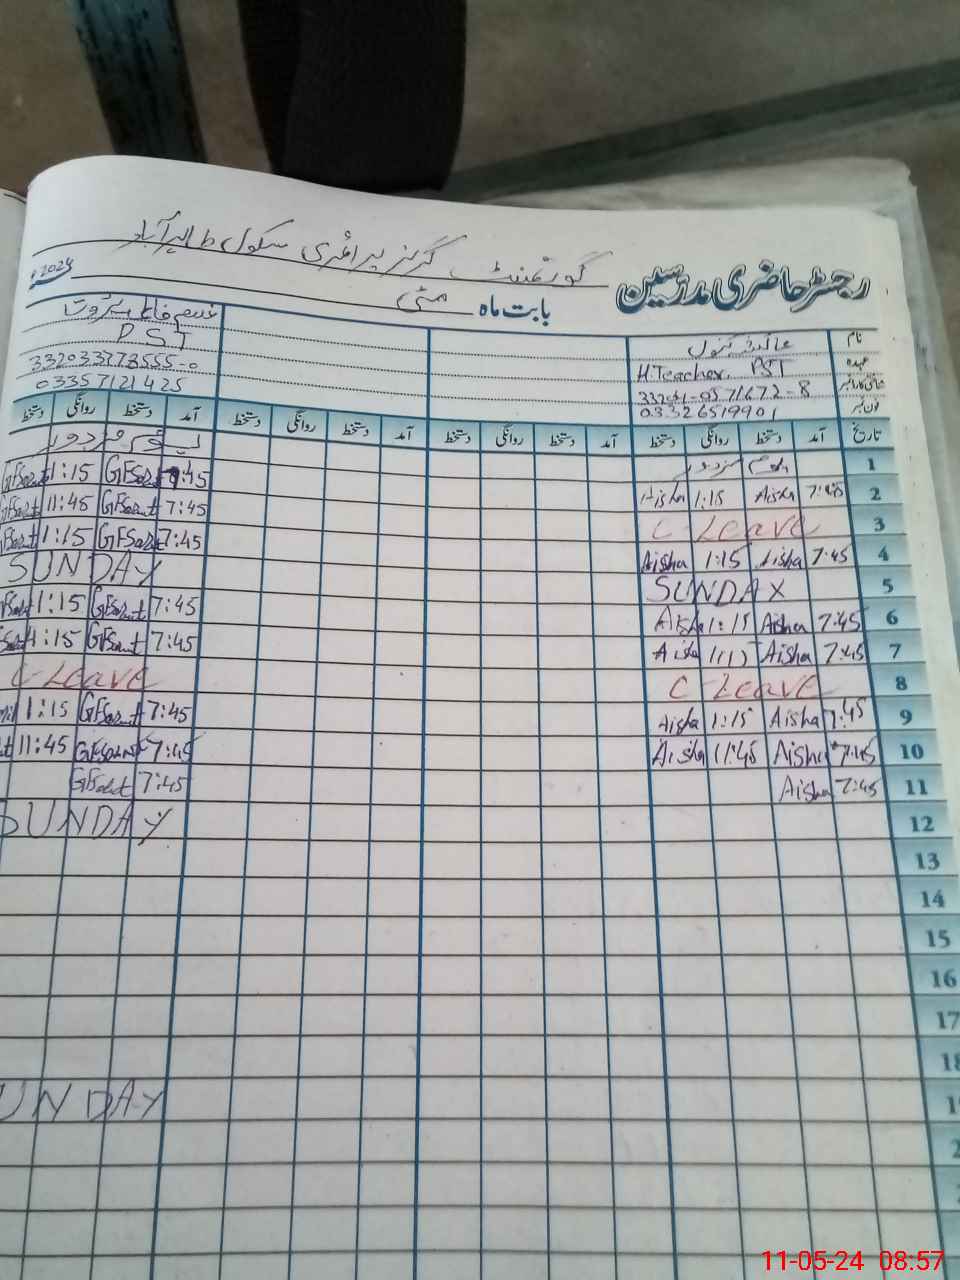 گورنمنٹ گرلز پرائمری سکول طالب آباد
رجسٹر حاضری مدرسین
بابت ماہ مئی 2024ء
نام عائشہ بتول
غلام فاطمہ ثروت
عہدہ H.Teacher. PST
PST
شناختی کارڈ نمبر 33201-0571672-8
332033273555-0
فون نمبر 03326519901
03357121425
تاریخ آمد دستخط روانگی دستخط آمد دستخط روانگی دستخط آمد دستخط روانگی دستخط آمد دستخط روانگی دستخط
1 یوم مزدور یوم مزدور
2 7:45 Aisha 1:15 Aisha 7:45 GFSarwat 1:15
3 C Leave 7:45 GFSarwat 11:45
4 Aisha 1:15 Aisha 7:45 7:45 GFSarwat 1:15
5 SUNDAY SUNDAY
6 Aisha 1:15 Aisha 7:45 7:45 GFSarwat 1:15
7 Aisha Aisha 7:45 7:45 GFSarwat 1:15
8 C Leave C Leave
9 Aisha 1:15 Aisha 7:45 7:45 GFSarwat 1:15
10 Aisha 11:45 Aisha 7:45 7:45 GFSarwat 11:45
11 Aisha 7:45 7:45 GFSarwat
12 SUNDAY
13
14
15
16
17
18
SUNDAY
11-05-24 08:57